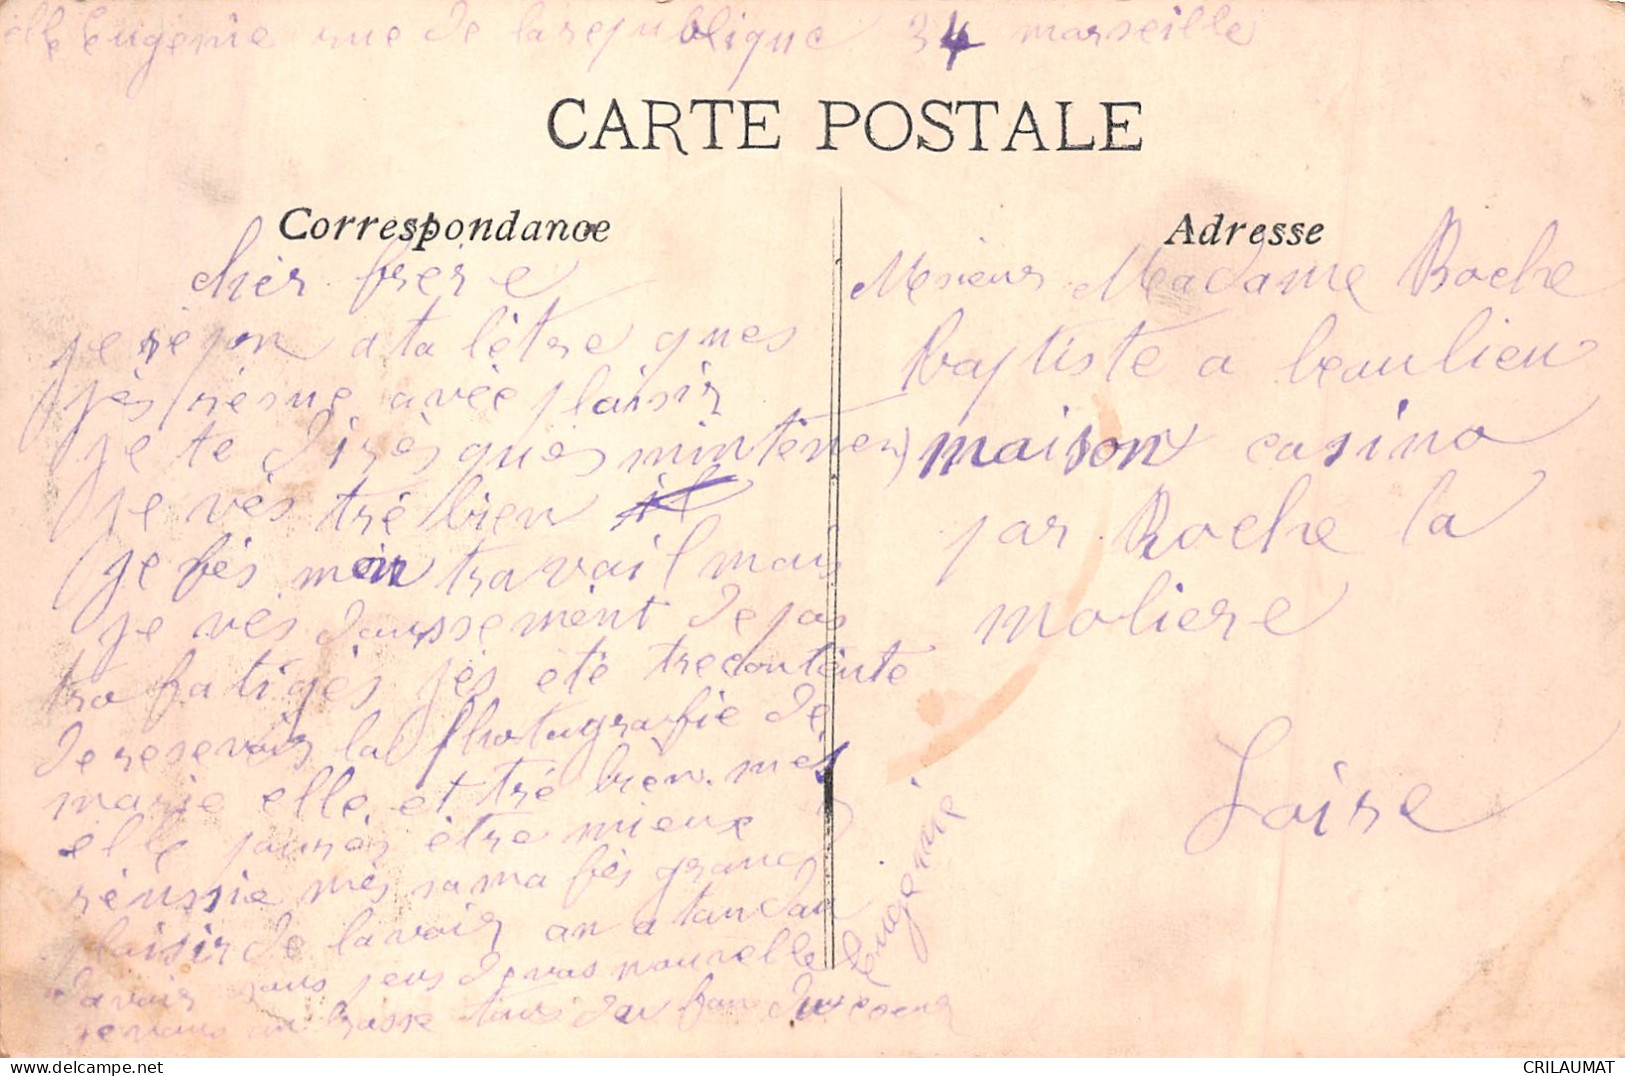 elle Eugenie rue de la republique 34 marseille
CARTE POSTALE
Correspondance
Adresse
chèr frere
je rèpon a ta lètre ques
jès résue avèe plaisir
je te dirès quès mintènen
je vès trè bien
je fès mon travail mais
je vès doussemènt de pas
tro fatigès jès étè trecontènte
de resevoir la photografie de
marie elle et trè bien mès
elle pourès ètre mieux
rèussie mès sa ma fès grand
plaisir de la voir an atandan
davoir sous peus de vos nouvelle
je vous anbrasse tous dou bon du coeur
Eugenie
Mesieur Madame Roche
Baptiste a beaulieu
maison casino
par Roche la
moliere
Loire
CRILAUMAT